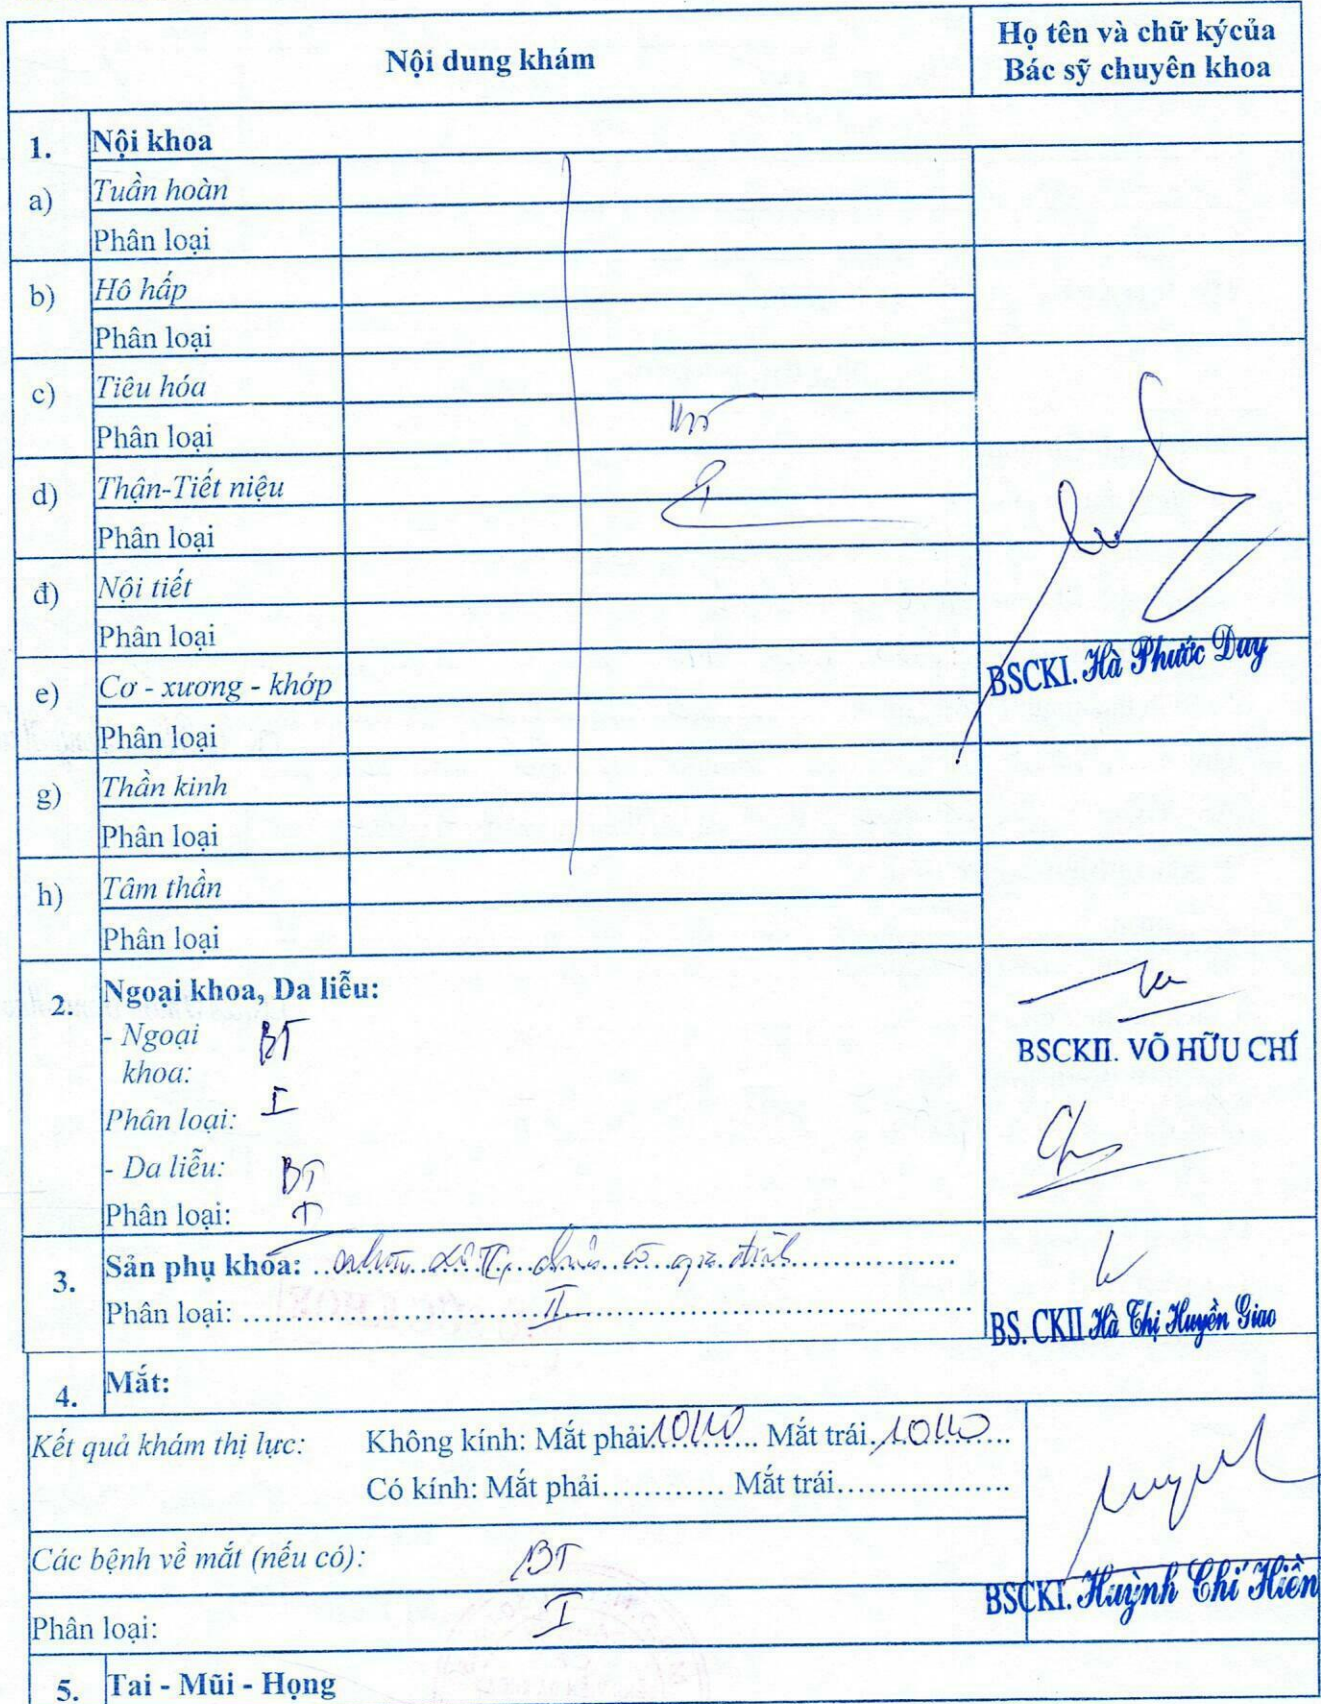 Nội dung khám
Họ tên và chữ kýcủa
Bác sỹ chuyên khoa
1. Nội khoa
a) Tuần hoàn
Phân loại
b) Hô hấp
Phân loại
c) Tiêu hóa
Phân loại
d) Thận-Tiết niệu
Phân loại
đ) Nội tiết
Phân loại
BSCKI. Hà Phước Duy
e) Cơ - xương - khớp
Phân loại
g) Thần kinh
Phân loại
h) Tâm thần
Phân loại
2. Ngoại khoa, Da liễu:
- Ngoại BT
khoa:
BSCKII. VÕ HỮU CHÍ
Phân loại: I
- Da liễu: BT
Phân loại: I
3. Sản phụ khoa: ..............................
Phân loại: ..............II..............
BS. CKII Hà Thị Huyền Giao
4. Mắt:
Kết quả khám thị lực: Không kính: Mắt phải 10/10 Mắt trái 10/10
Có kính: Mắt phải............ Mắt trái.................
Các bệnh về mắt (nếu có): BT
BSCKI. Huỳnh Chí Hiền
Phân loại: I
5. Tai - Mũi - Họng